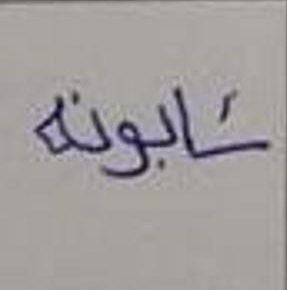 شابونه